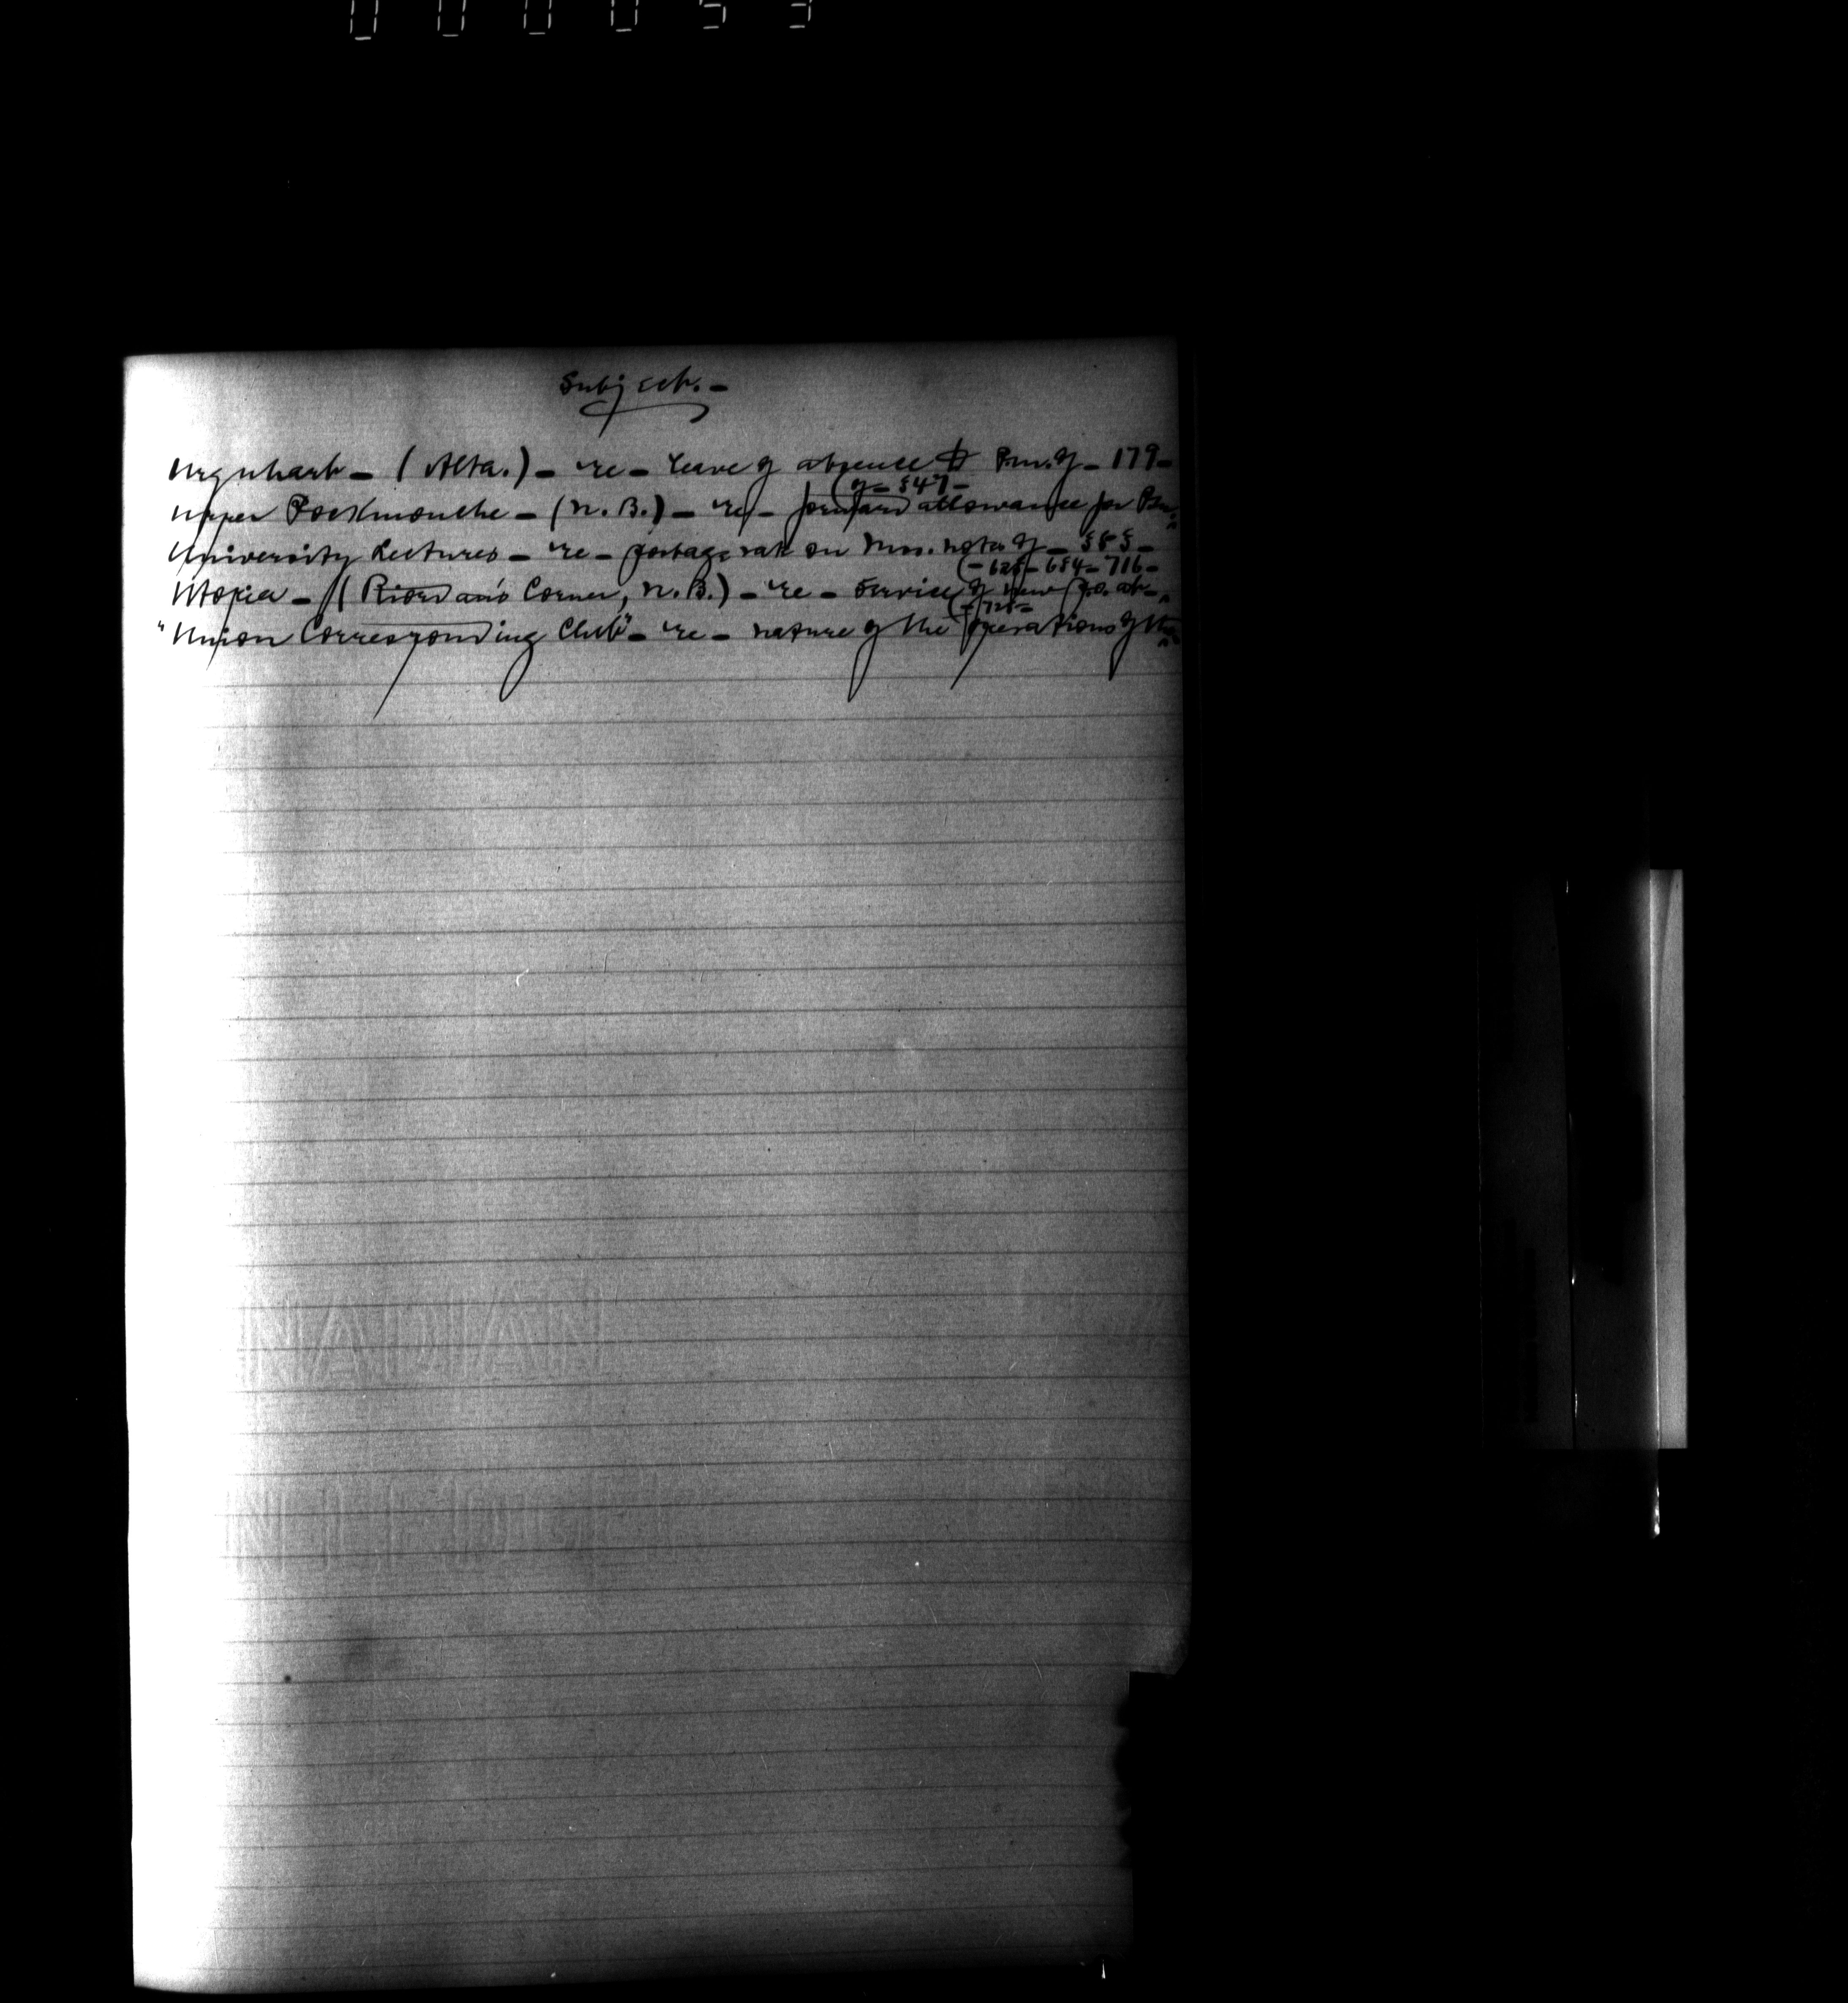 Subject. -
Urquhart - (Alta.) - re - leave of absence to P.m. of - 179 -
(of - 547 -
Upper Pockmouche - (N. B.) - re - forward allowance for Pm.
University Lectures - re - postage rate on Mss. notes of - 585 -
(- 625 - 654 - 716 -
Utopia - (Riordan's Corner, N. B.) - re - service of new P.O. at -
(- 725 -
"Union Corresponding Club" - re - nature of the operations of the